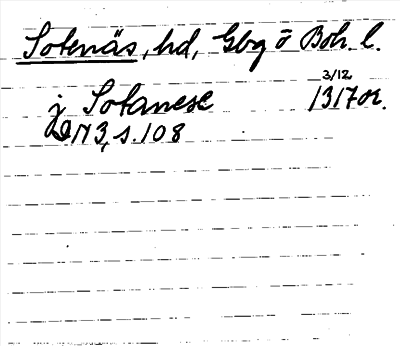 Sotenäs, hd, Gbg o Boh. l.
3/12
j Sotanese 1317 or.
DN 3, s. 108